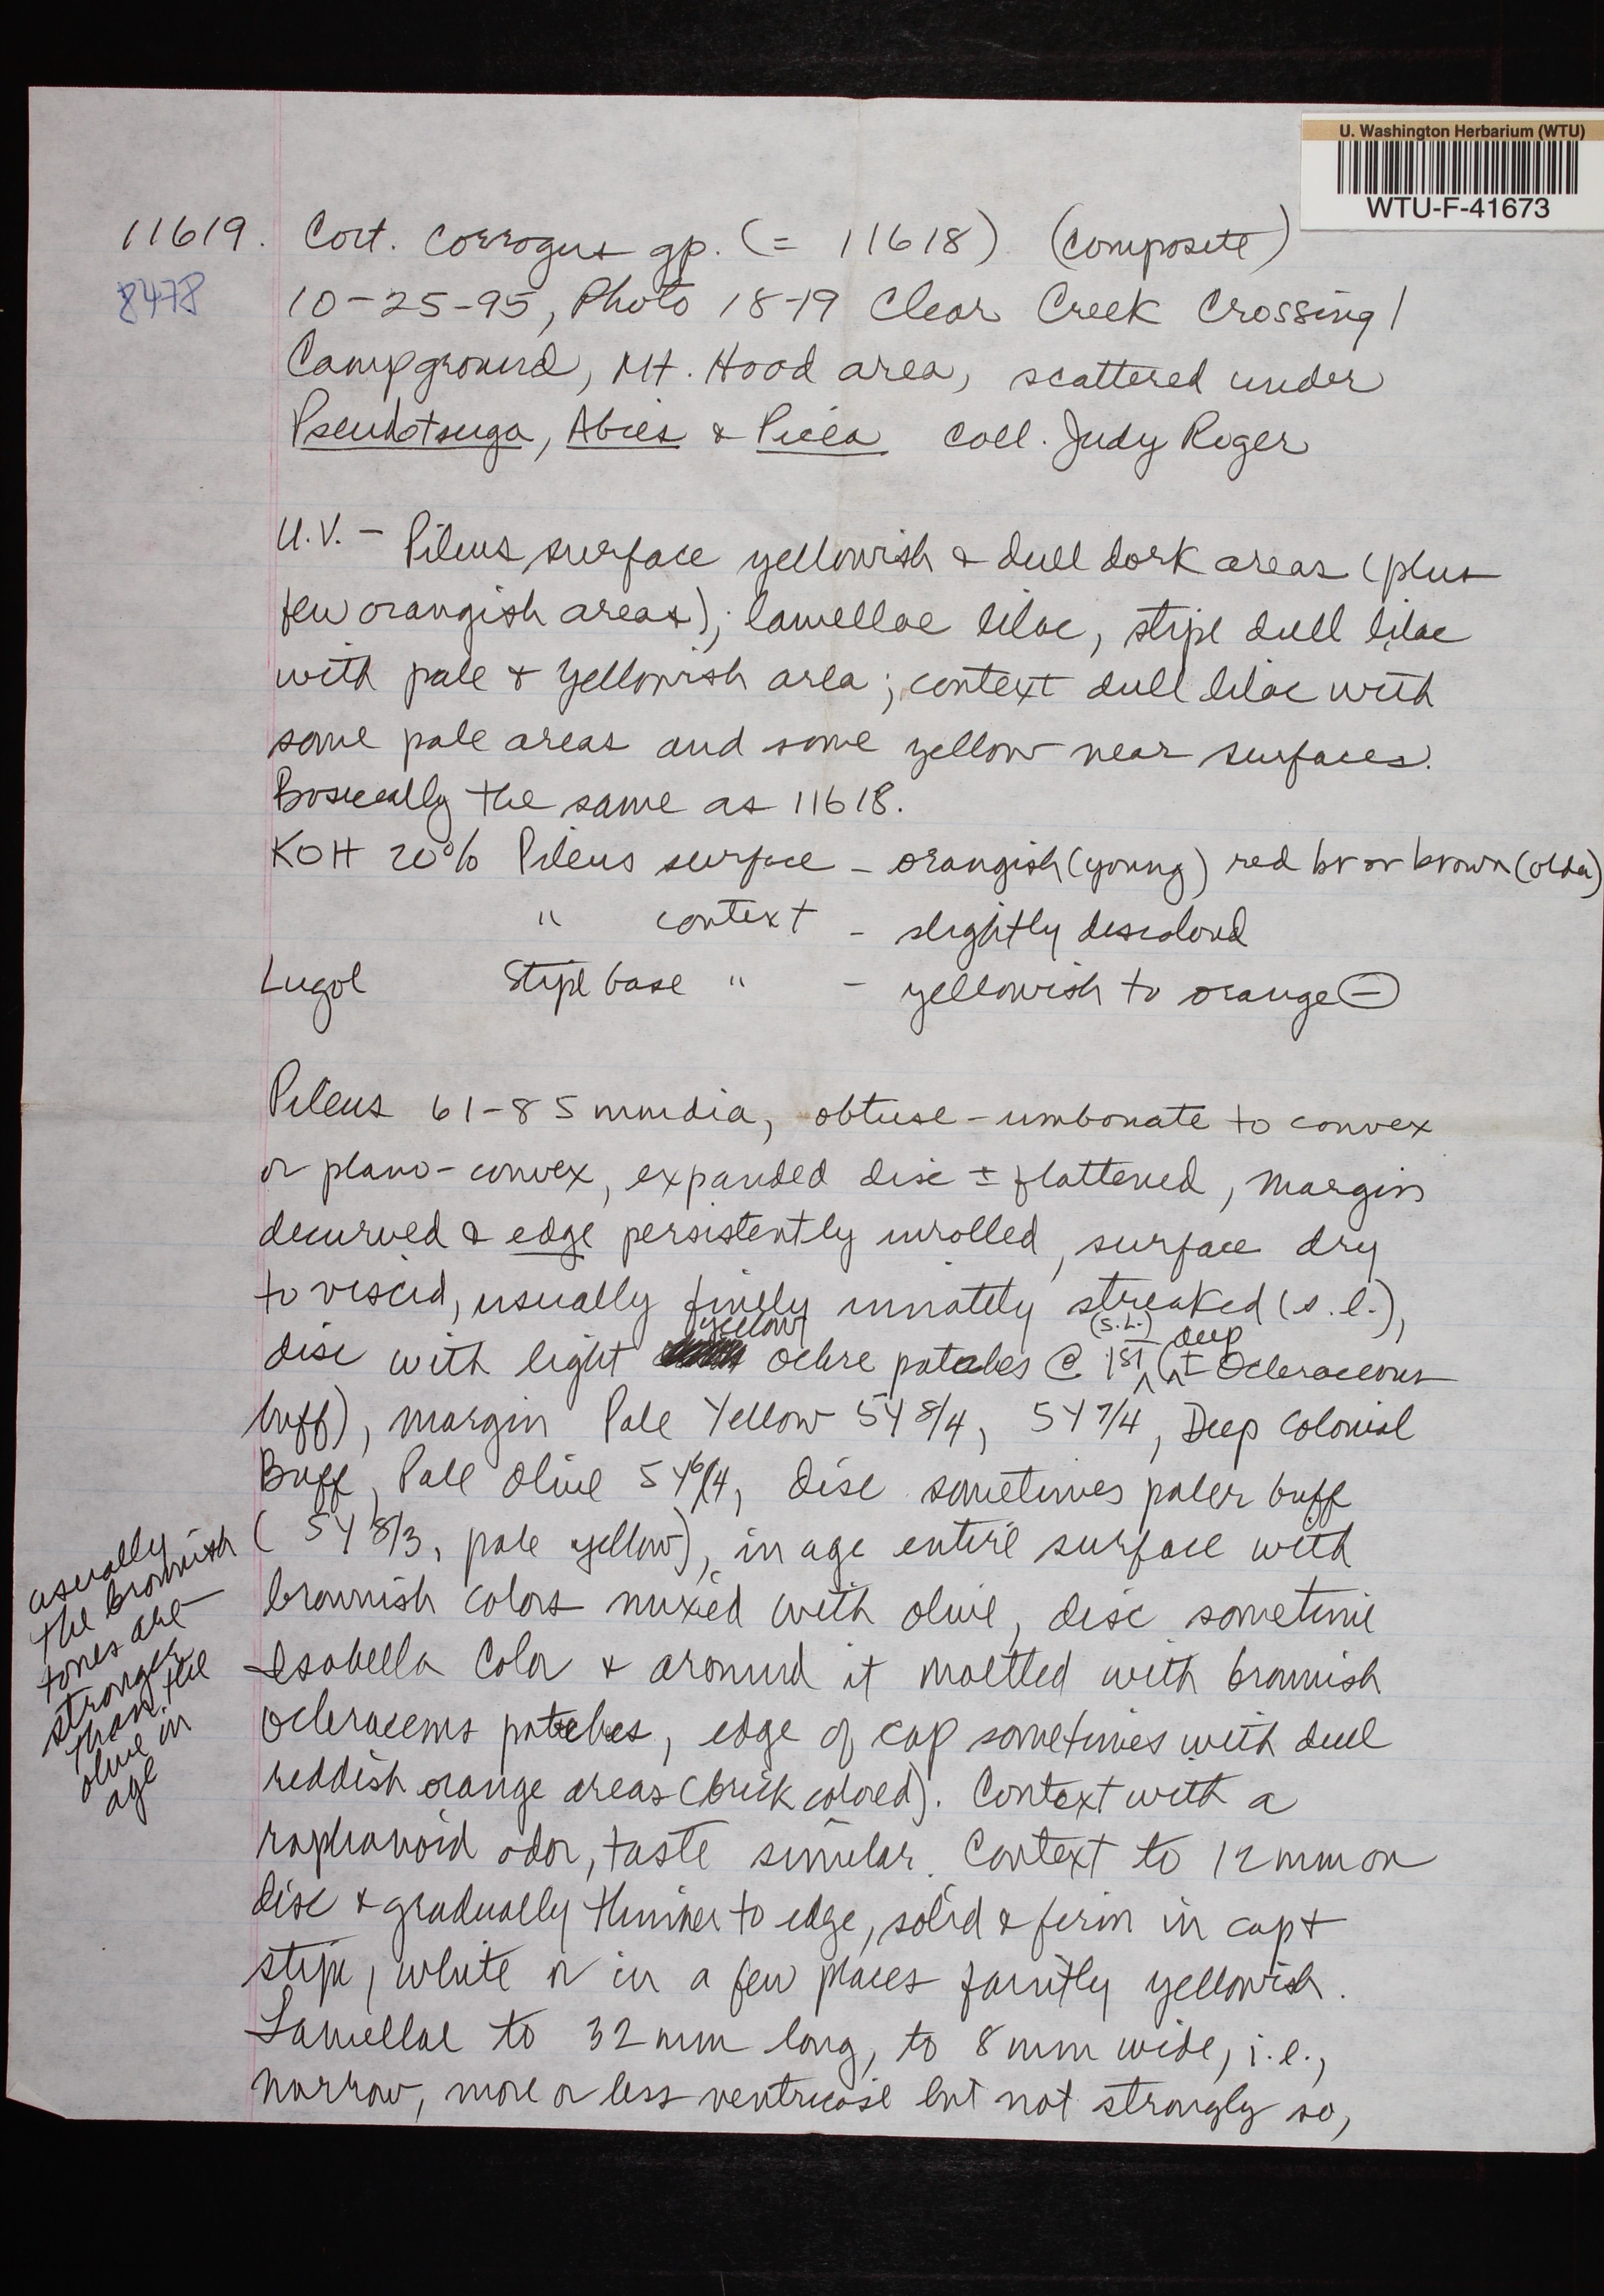 U. Washington Herbarium (WTU)
WTU-F-41673
11619. Cort. corrogus gp. (= 11618) (composite)
8478
10-25-95, Photo 18-19 Clear Creek Crossing/
Campground, Mt. Hood area, scattered under
Pseudotsuga, Abies & Picea coll. Judy Roger
U.V. - Pileus surface yellowish & dull dark areas (plus
few orangish areas); lamellae lilac, stipe dull lilac
with pale & yellowish area; context dull lilac with
some pale areas and some yellow near surfaces.
Basically the same as 11618.
KOH 20% Pileus surface - orangish (young) red br or brown (older)
" context - slightly discolored
Lugol Stipe base " - yellowish to orange (-)
Pileus 61-85 mm dia, obtuse-umbonate to convex
or plano-convex, expanded disc ± flattened, margin
decurved & edge persistently inrolled, surface dry
to viscid, usually finely innately streaked (s.l.),
disc with light yellow ochre patches @ 1st (s.l.) (± deep Ochraceous
buff), margin Pale Yellow 5Y 8/4, 5Y 7/4, Deep Colonial
Buff, Pale Olive 5Y 6/4, disc sometimes paler buff
(5Y 8/3, pale yellow), in age entire surface with
brownish colors mixed with olive, disc sometime
Isabella Color & around it mottled with brownish
ochraceous patches, edge of cap sometimes with dull
reddish orange areas (brick colored). Context with a
raphanoid odor, taste similar. Context to 12 mm on
disc & gradually thinner to edge, solid & firm in cap &
stipe, white or in a few places faintly yellowish.
Lamellae to 32 mm long, to 8 mm wide, i.e.,
narrow, more or less ventricose but not strongly so,
usually
the brownish
tones are
stronger
than the
olive in
age